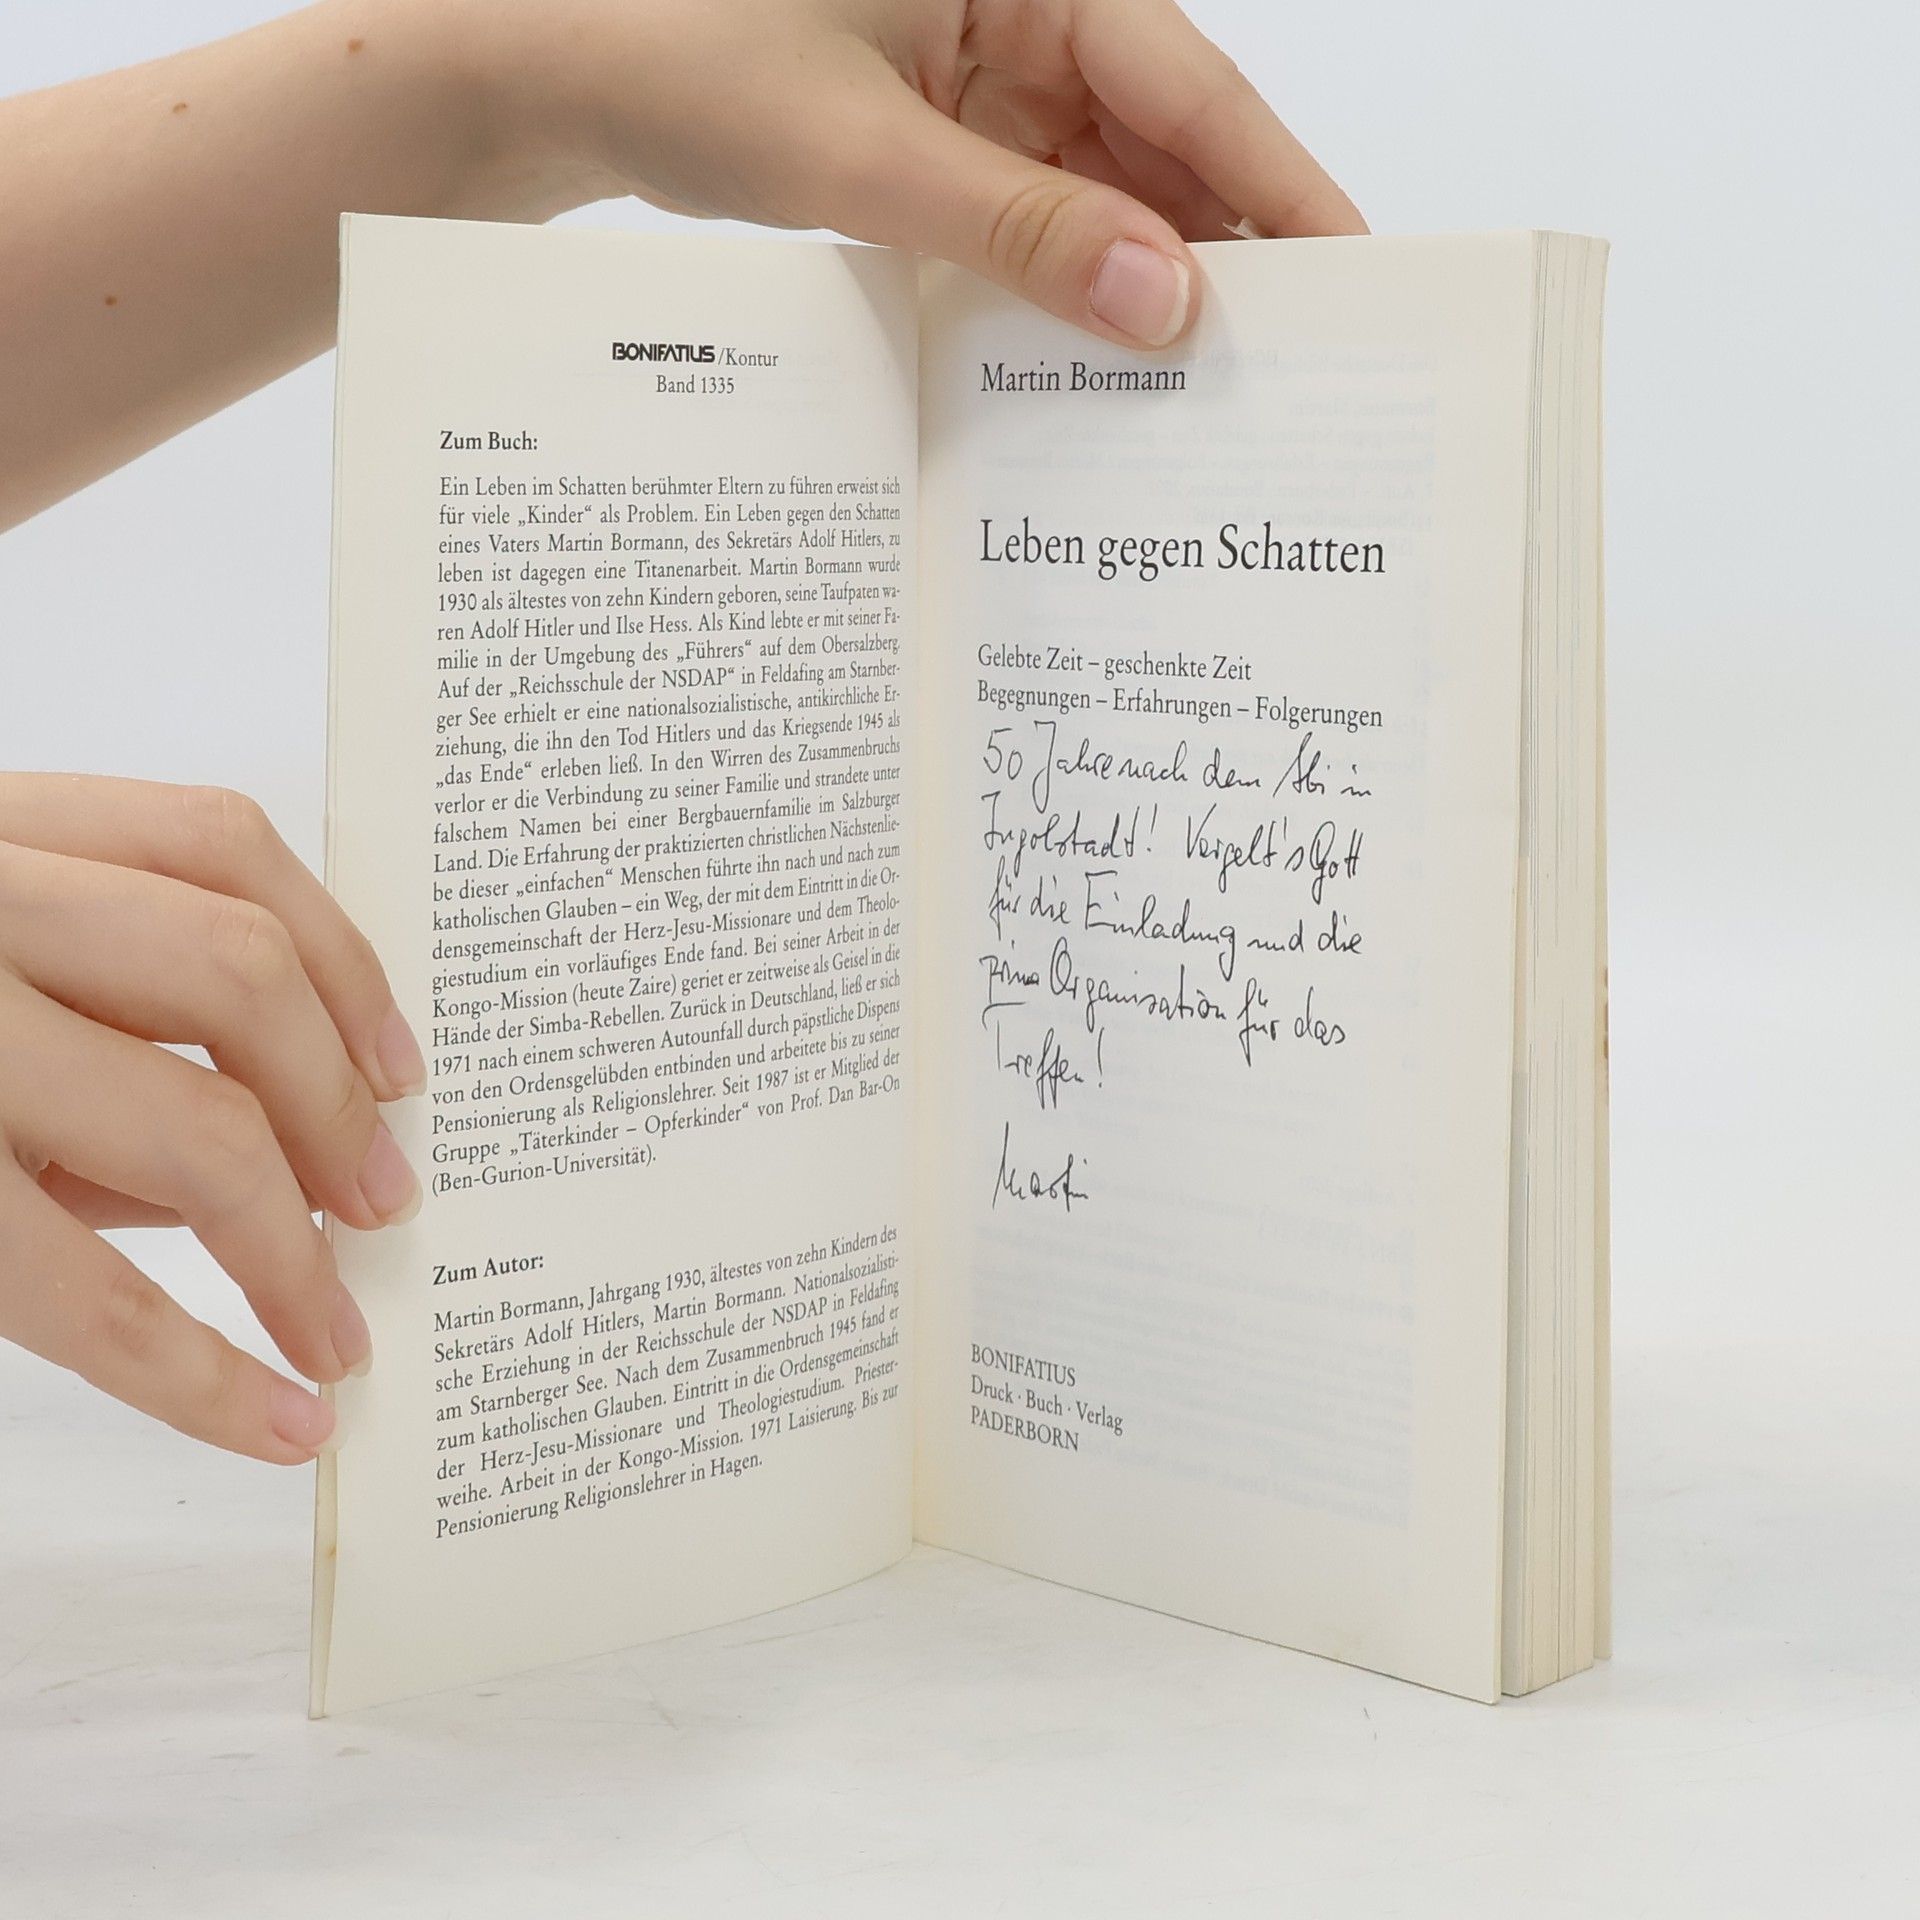 BONIFATIUS/Kontur
Band 1335
Zum Buch:
Ein Leben im Schatten berühmter Eltern zu führen erweist sich
für viele „Kinder“ als Problem. Ein Leben gegen den Schatten
eines Vaters Martin Bormann, des Sekretärs Adolf Hitlers, zu
leben ist dagegen eine Titanenarbeit. Martin Bormann wurde
1930 als ältestes von zehn Kindern geboren, seine Taufpaten wa-
ren Adolf Hitler und Ilse Hess. Als Kind lebte er mit seiner Fa-
milie in der Umgebung des „Führers“ auf dem Obersalzberg.
Auf der „Reichsschule der NSDAP“ in Feldafing am Starnber-
ger See erhielt er eine nationalsozialistische, antikirchliche Er-
ziehung, die ihn den Tod Hitlers und das Kriegsende 1945 als
„das Ende“ erleben ließ. In den Wirren des Zusammenbruchs
verlor er die Verbindung zu seiner Familie und strandete unter
falschem Namen bei einer Bergbauernfamilie im Salzburger
Land. Die Erfahrung der praktizierten christlichen Nächstenlie-
be dieser „einfachen“ Menschen führte ihn nach und nach zum
katholischen Glauben – ein Weg, der mit dem Eintritt in die Or-
densgemeinschaft der Herz-Jesu-Missionare und dem Theolo-
giestudium ein vorläufiges Ende fand. Bei seiner Arbeit in der
Kongo-Mission (heute Zaire) geriet er zeitweise als Geisel in die
Hände der Simba-Rebellen. Zurück in Deutschland, ließ er sich
1971 nach einem schweren Autounfall durch päpstliche Dispens
von den Ordensgelübden entbinden und arbeitete bis zu seiner
Pensionierung als Religionslehrer. Seit 1987 ist er Mitglied der
Gruppe „Täterkinder – Opferkinder“ von Prof. Dan Bar-On
(Ben-Gurion-Universität).
Zum Autor:
Martin Bormann, Jahrgang 1930, ältestes von zehn Kindern des
Sekretärs Adolf Hitlers, Martin Bormann. Nationalsozialisti-
sche Erziehung in der Reichsschule der NSDAP in Feldafing
am Starnberger See. Nach dem Zusammenbruch 1945 fand er
zum katholischen Glauben. Eintritt in die Ordensgemeinschaft
der Herz-Jesu-Missionare und Theologiestudium. Priester-
weihe. Arbeit in der Kongo-Mission. 1971 Laisierung. Bis zur
Pensionierung Religionslehrer in Hagen.
Martin Bormann
Leben gegen Schatten
Gelebte Zeit – geschenkte Zeit
Begegnungen – Erfahrungen – Folgerungen
50 Jahre nach dem Abi in
Ingolstadt! Vergelt's Gott
für die Einladung und die
prima Organisation für das
Treffen!
Martin
BONIFATIUS
Druck · Buch · Verlag
PADERBORN